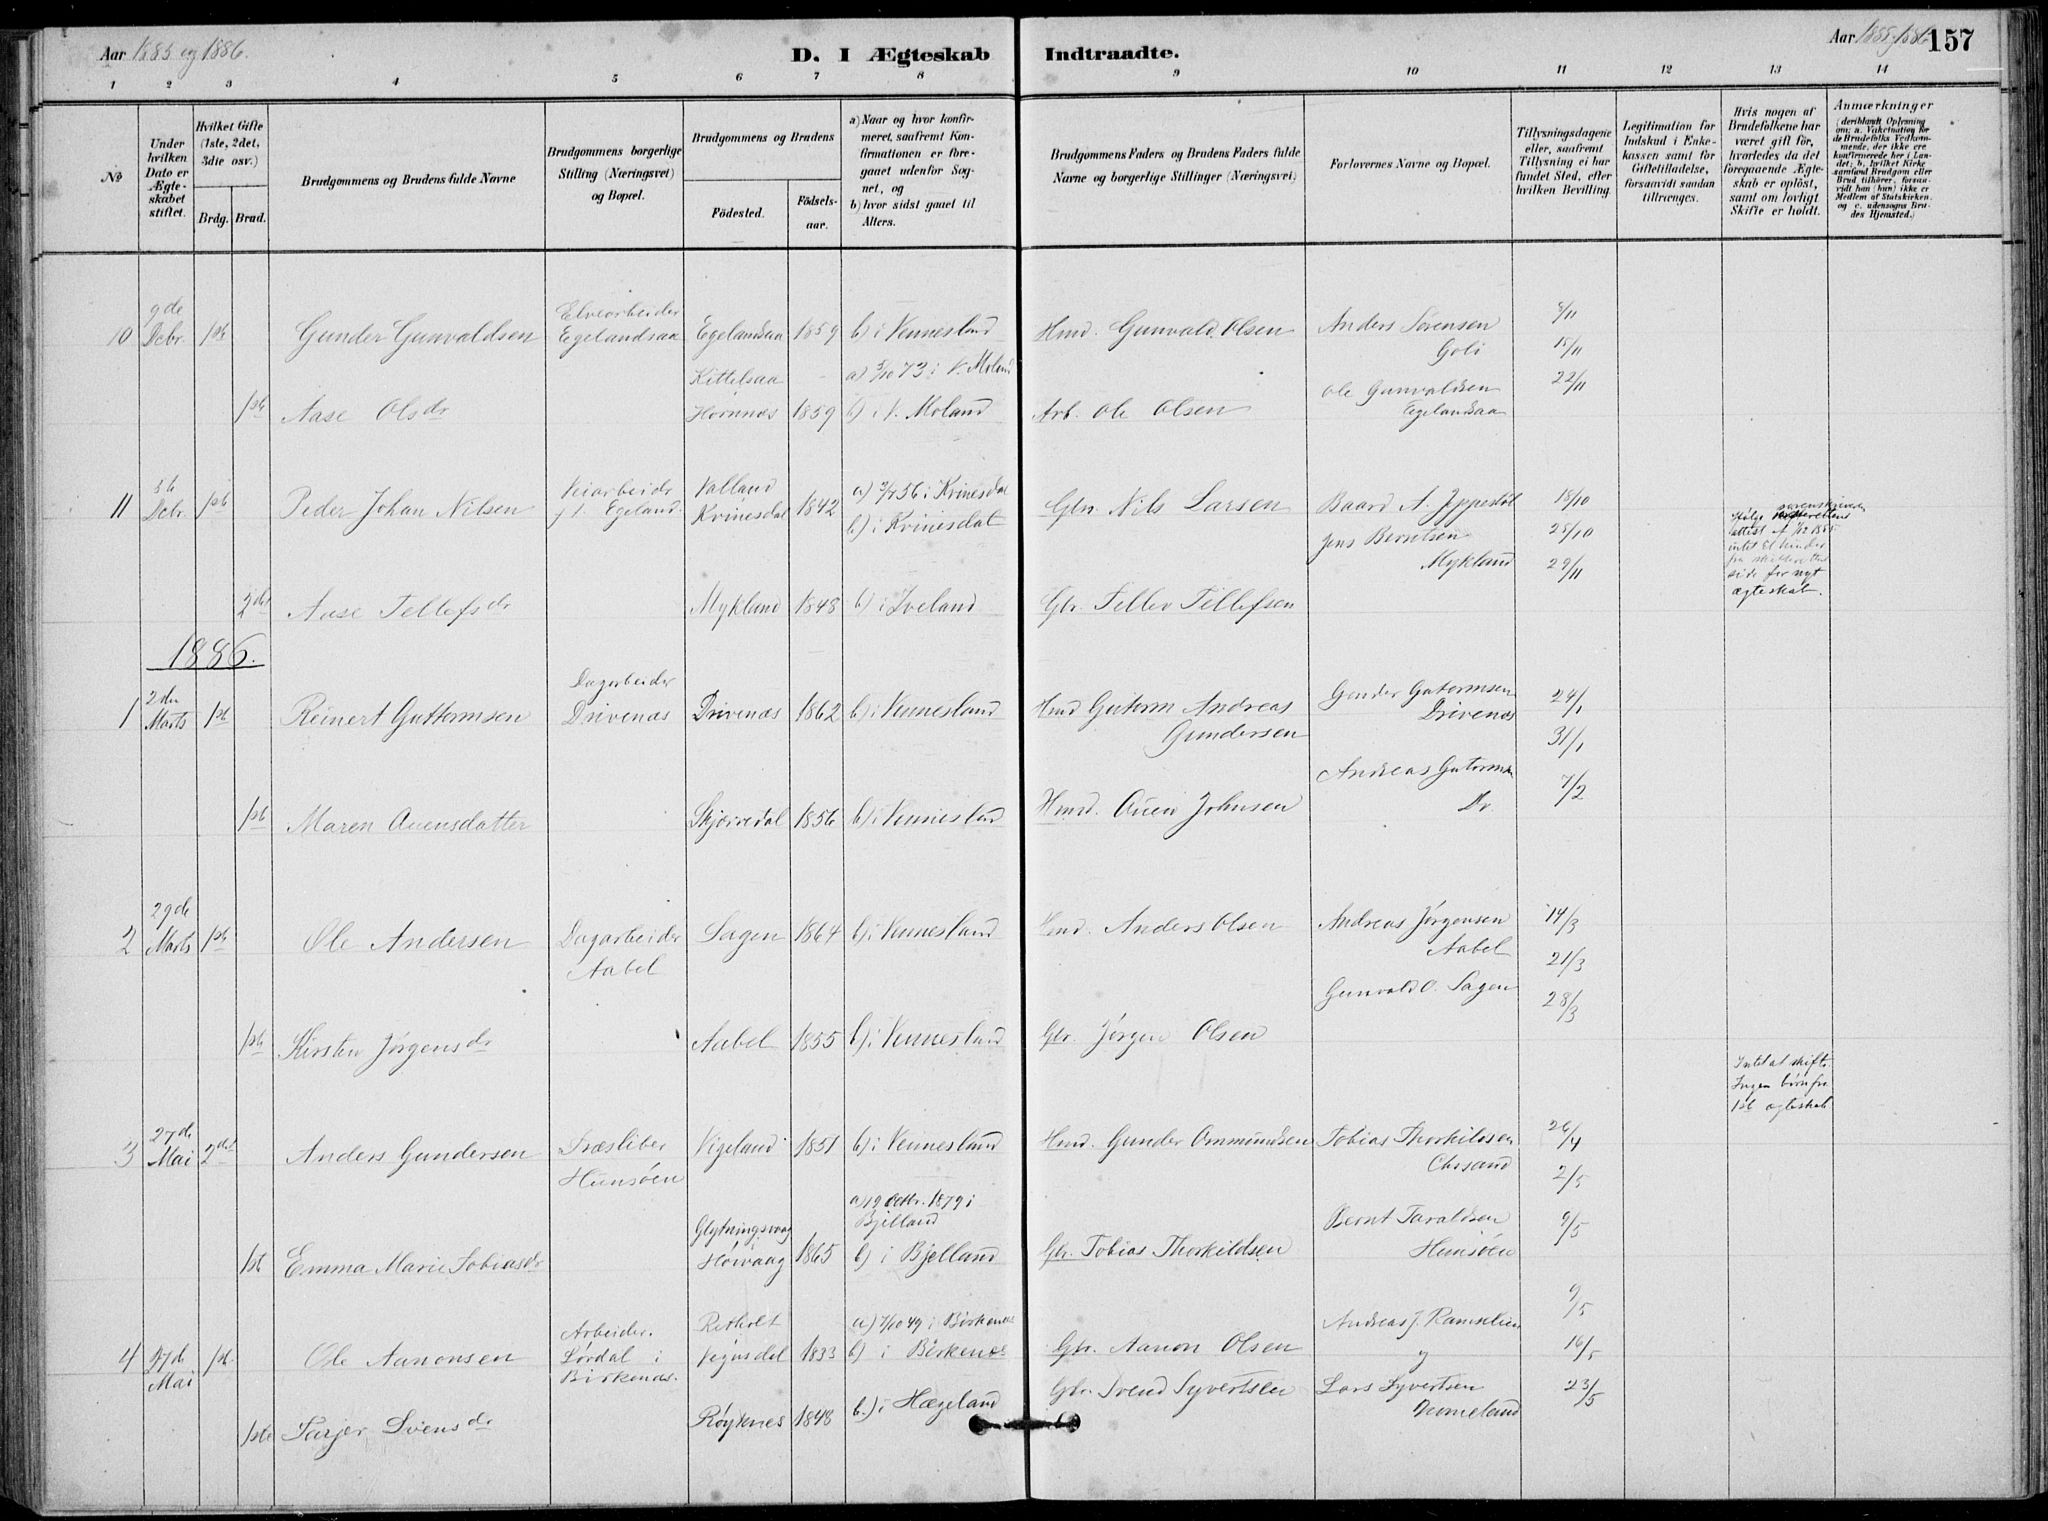 Aar 1885 og 1886.
D. I Ægteskab Indtraadte.
Aar 1885 og 1886
157
1 2 3 4 5 6 7 8 9 10 11 12 13 14
No
Under hvilken Dato er Ægteskabet stiftet.
Hvilket Gifte (1ste, 2det, 3die osv.)
Brdg. Brud.
Brudgommens og Brudens fulde Navne
Brudgommens borgerlige Stilling (Næringsvei) og Bopæl.
Brudgommens og Brudens
Födested.
Födselsaar.
a) Naar og hvor konfirmeret, saafremt Konfirmationen er foregaaet udenfor Sognet, og
b) hvor sidst gaaet til Alters.
Brudgommens Faders og Brudens Faders fulde Navne og borgerlige Stillinger (Næringsvei)
Forlovernes Navne og Bopæl.
Tillysningsdagene eller, saafremt Tillysning ei har fundet Sted, efter hvilken Bevilling.
Legitimation for Indskud i Enkekassen samt for Giftetilladelse, forsaavidt saadan tiltrænges.
Hvis nogen af Brudefolkene har været gift för, hvorledes da det foregaaende Ægteskab er oplöst, samt om lovligt Skifte er holdt.
Anmærkninger (deriblandt Oplysning om: a. Vakcination for de Brudefolks Vedkommende, der ikke ere konfirmerede her i Landet; b. hvilket Kirkesamfund Brudgom eller Brud tilhörer, forsaavidt han (hun) ikke er Medlem af Statskirken, og c. udensogns Brudes Hjemsted.)
10 9de Decbr. 1ste Gunder Gunvaldsen Elvearbeider Egelandsaa Egelandsaa 1859 b) i Vennesland Hmd. Gunvald Olsen Anders Sørensen Goli 8/11 15/11
1ste Aase Olsdr Kittelsaa Hornnes 1859 a) 5/10 73 i V. Moland b) i V. Moland Arb. Ole Olsen Ole Gunvaldsen Egelandsaa 22/11
11 Decbr. 1ste Peder Johan Nilsen Veiarbeider Egeland Valland Kvinesdal 1842 56 i Kvinesdal b) i Kvinesdal Gbr. Nils Larsen Baard A. Ippestøl 18/10 25/10
2det Aase Tellefsdr Mykland 1848 b) i Iveland Gbr. Tellev Tellefsen Jens Berntsen Mykland 29/11
attest 1885 intet til hinder fra skifterettens side for nyt ægteskab.
1886.
1 2den Marts 1ste Reinert Guttormsen Dagarbeider Drivenæs Drivenæs 1862 b) i Vennesland Hmd Gutorm Andreas Gundersen Gunder Gutormsen Drivenæs 24/1 31/1
1ste Maren Auensdatter Skjærredal 1856 b) i Vennesland Hmd. Auen Johnsen Andreas Gutormsen Dr. 7/2
2 29de Marts 1ste Ole Andersen Dagarbeider Aabel Sagen 1864 b) i Vennesland Hmd. Anders Olsen Andreas Jørgensen Aabel 14/3 21/3
1ste Kirsten Jørgensdr Aabel 1855 b) i Vennesland Gbr. Jørgen Olsen Gunvald O. Sagen 28/3
Intet at skifte. Ingen børn fra 1ste ægteskab
3 27de Mai 2det Anders Gundersen Træsliber Hunsøen Vigeland 1851 b) i Vennesland Hmd. Gunder Ommundsen Tobias Thorkildsen Chrsand 26/4 2/5
1ste Emma Marie Tobiasdr Høivaag 1865 a) 19 Octbr. 1879 i Bjelland b) i Bjelland Gbr. Tobias Thorkildsen Bernt Taraldsen Hunsøen 9/5
4 27de Mai 1ste Ole Aanonsen Arbeider. Lørdal i Birkenæs. Vegusdal 1833 a) 7/10 49 i Birkenæs b) i Birkenæs Gbr. Aanon Olsen Andreas J. Ramslien 9/5 16/5
1ste Tarjer Svensdr Røyknes 1848 b.) i Hægeland Gbr. Svend Syvertsen Lars Syvertsen 23/5